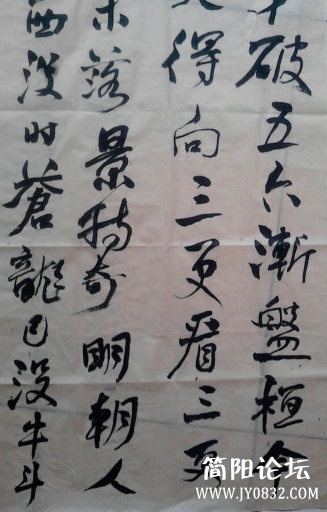 破五六漸盤桓今
得向三更看三更
未落景特奇明朝人
西没时蒼龍已没牛斗
简阳论坛
www.JY0832.com